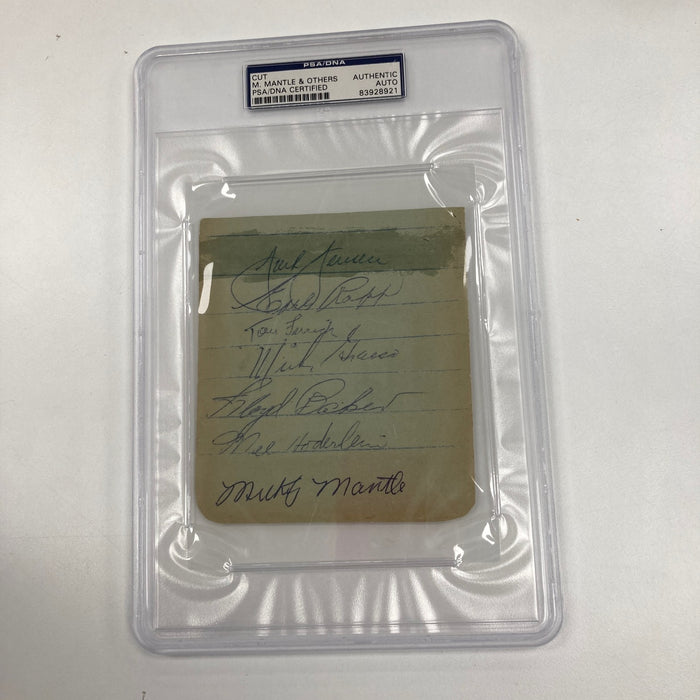 PSA/DNA
CUT
M. MANTLE & OTHERS
PSA/DNA CERTIFIED
AUTHENTIC
AUTO
83928921
Jack Jensen
Earl Rapp
Tom Ferrick
"Mick" Grasso
Floyd Baker
Mel Hoderlein
Micky Mantle